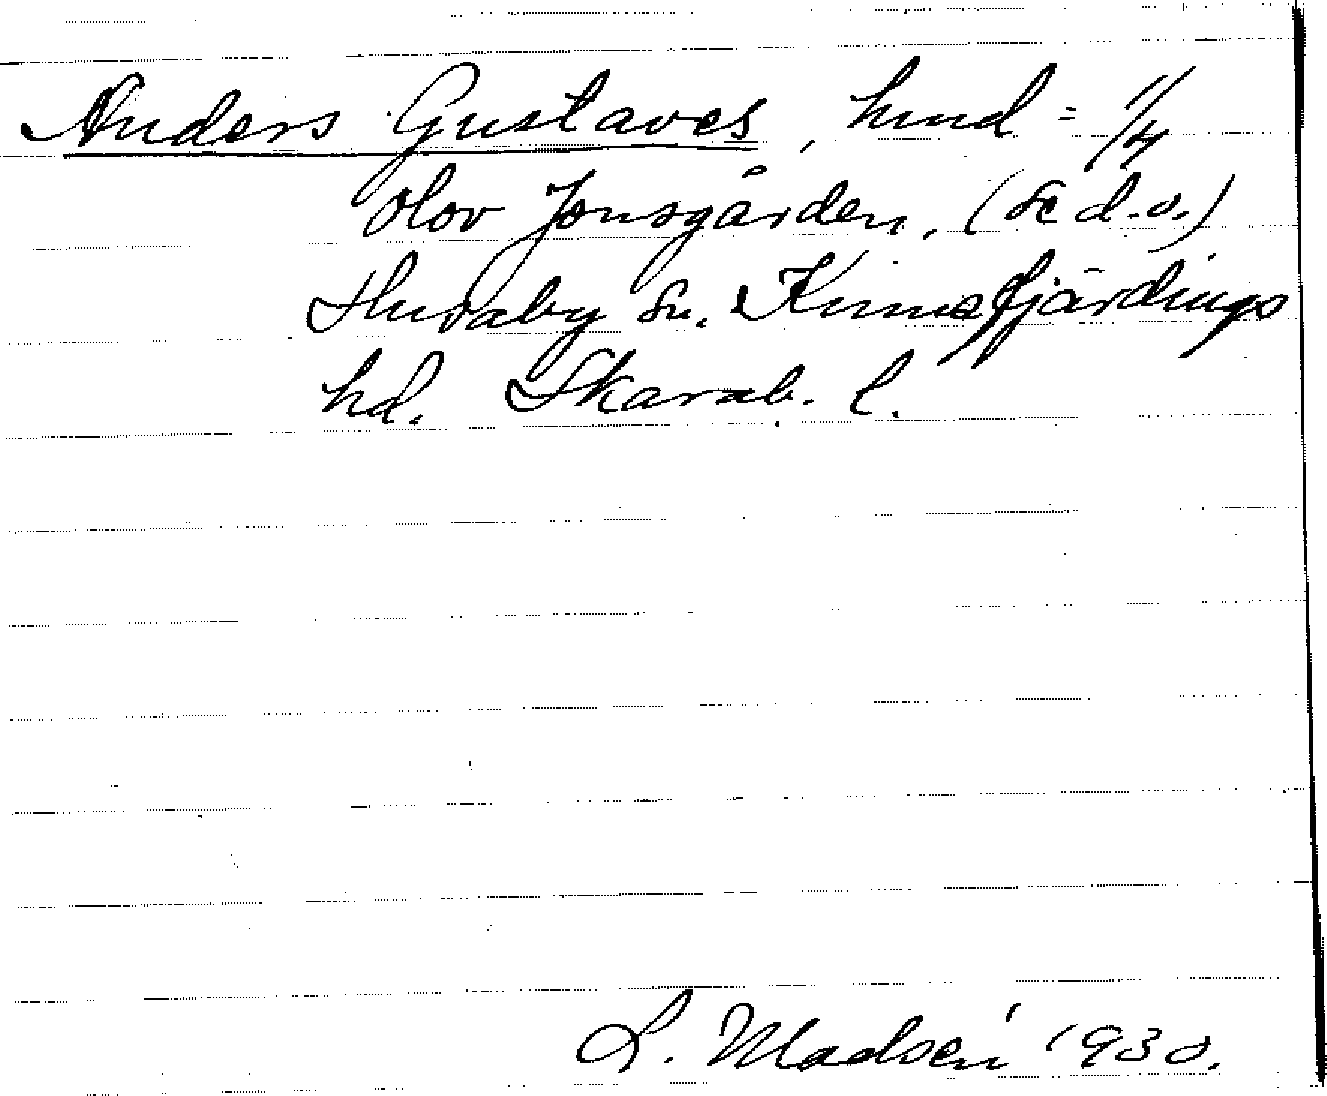 Anders Gustaves, hmd = 1/4
Olov Jonsgården, (se d.o.)
Husaby sn. Kinnefjärdings
hd. Skarab. l.
L. Madsén 1930.